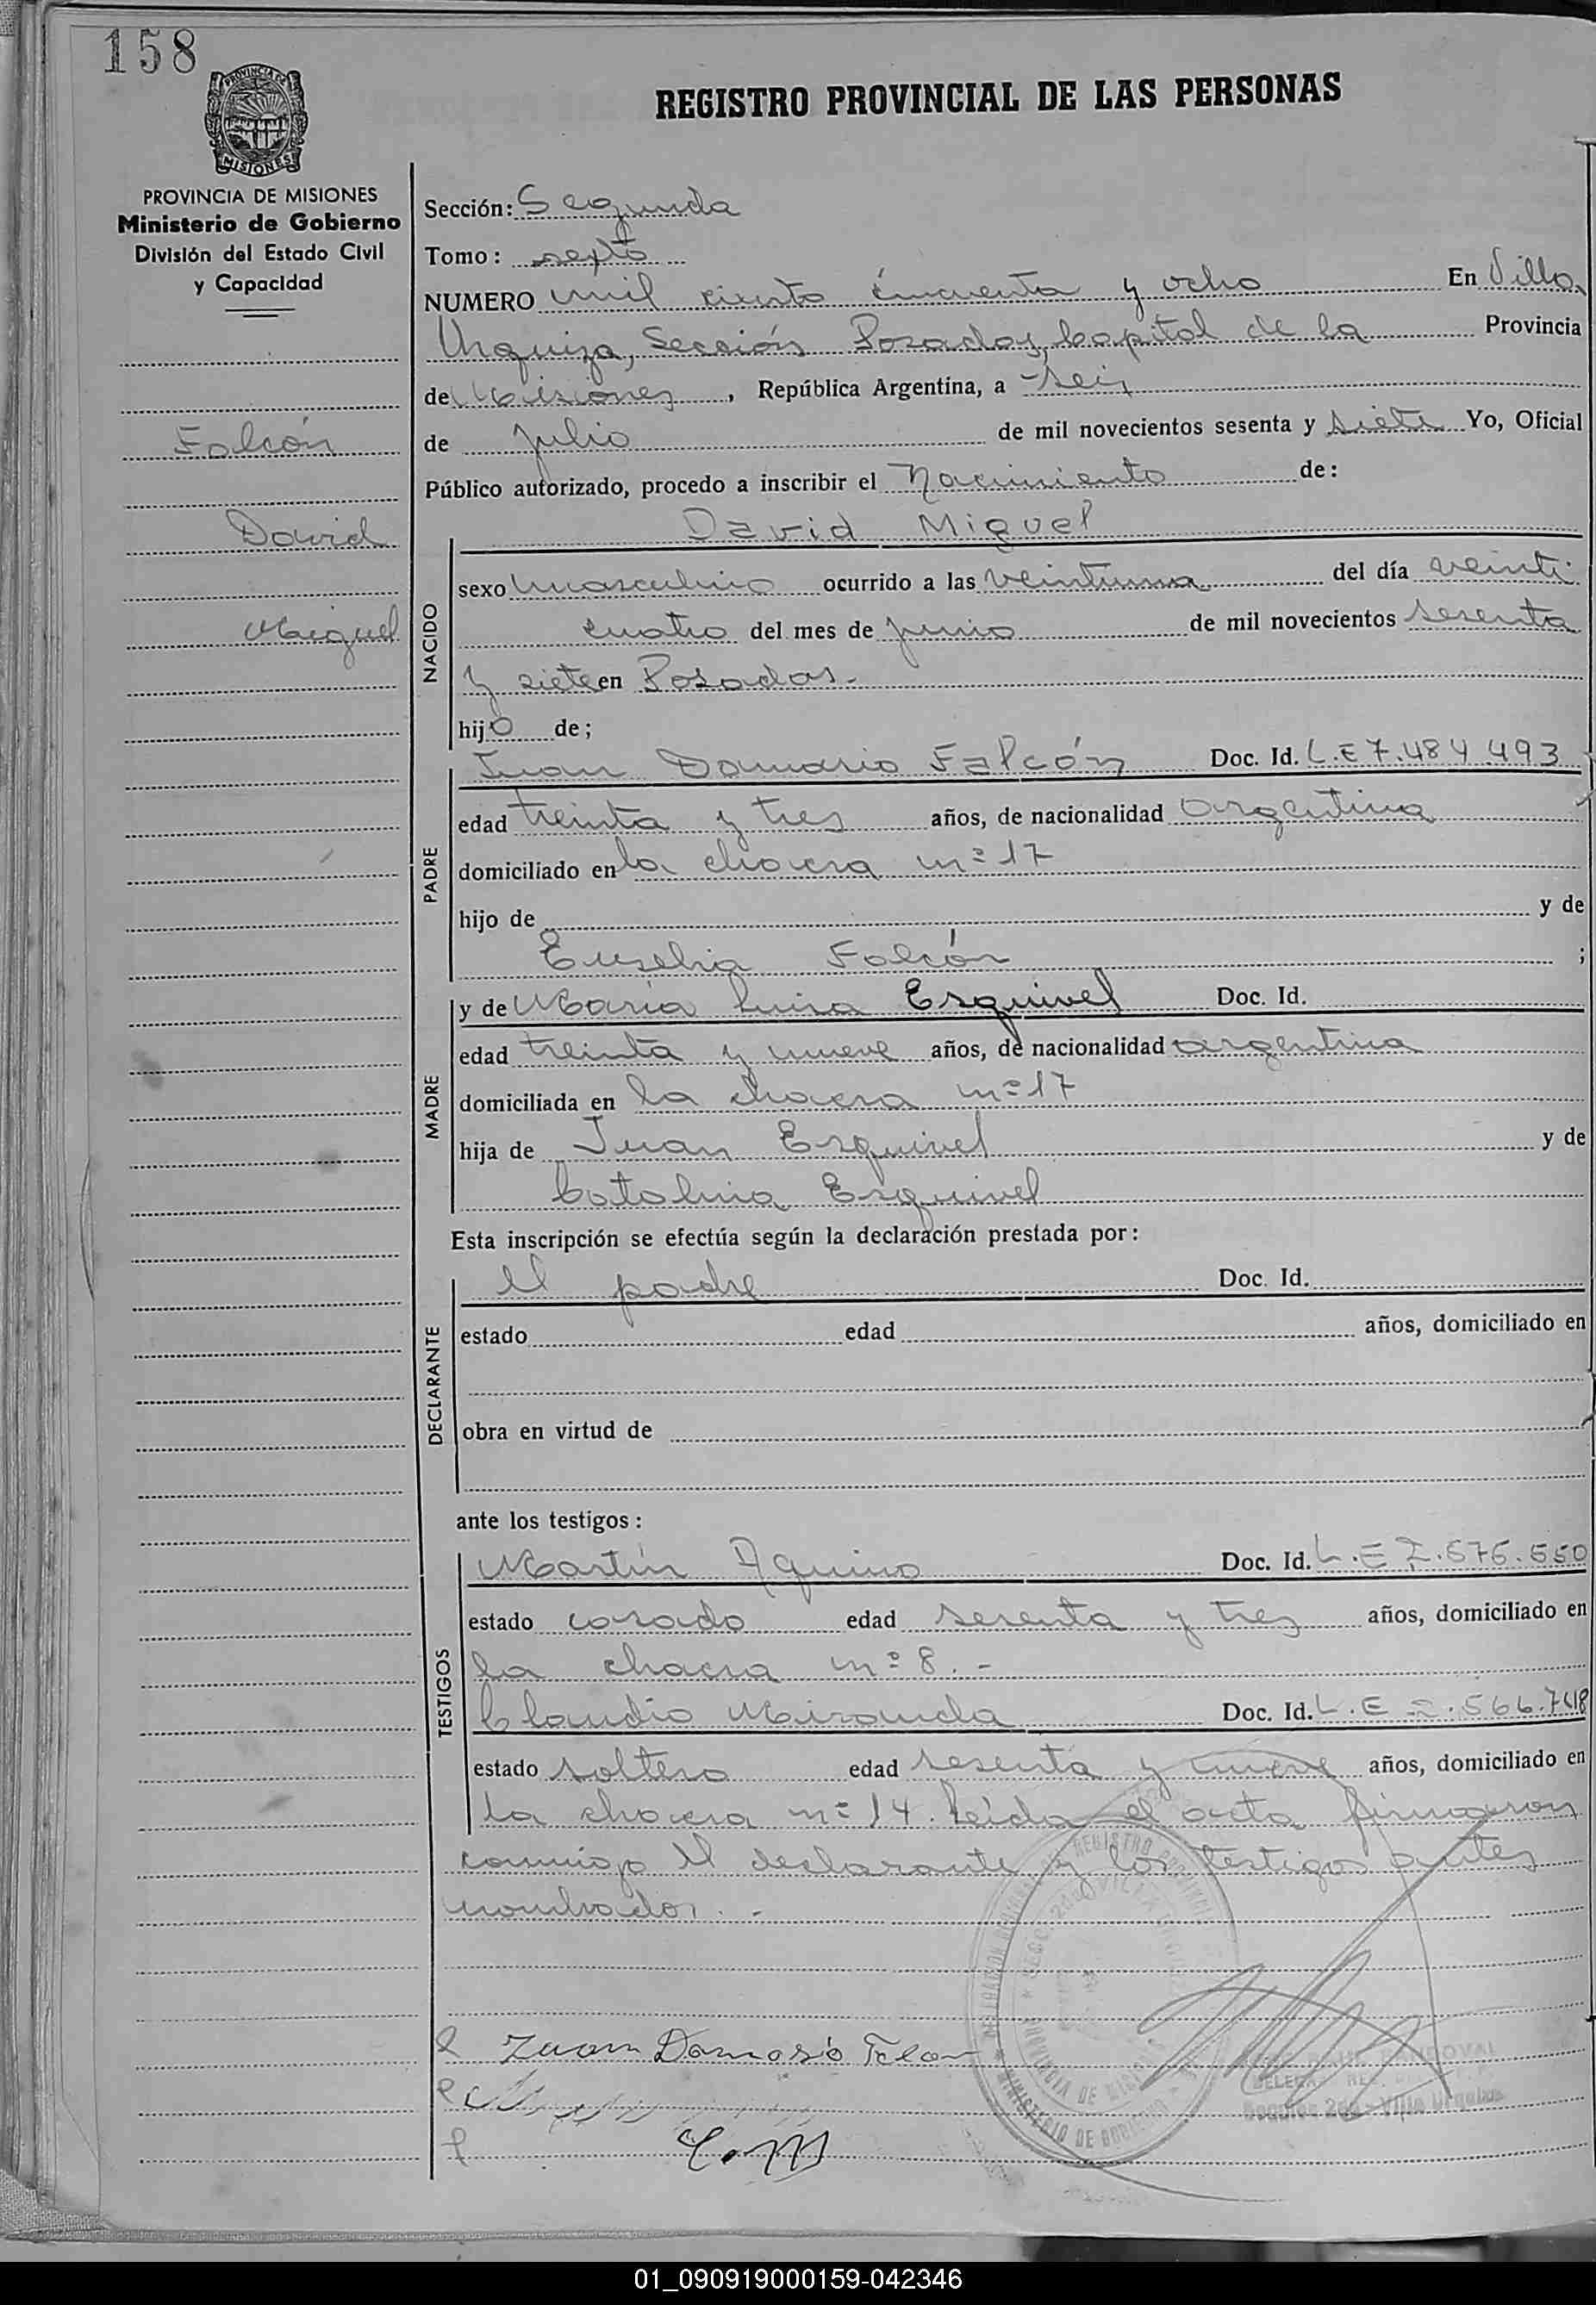 158
PROVINCIA DE
MISIONES
REGISTRO PROVINCIAL DE LAS PERSONAS
PROVINCIA DE MISIONES
Ministerio de Gobierno
División del Estado Civil
y Capacidad
Falcón
David
Miguel
Sección: Segunda
Tomo: sexto
NUMERO mil ciento cincuenta y ocho En Villa
Urquiza, Sección Posadas, Capital de la Provincia
de Misiones, República Argentina, a seis
de julio de mil novecientos sesenta y siete Yo, Oficial
Público autorizado, procedo a inscribir el Nacimiento de:
David Miguel
NACIDO
sexo masculino ocurrido a las veintiuna del día veinti
cuatro del mes de junio de mil novecientos sesenta
y siete en Posadas.-
hijo de;
PADRE
Juan Damasio Falcón Doc. Id. L.E 7.484.493
edad treinta y tres años, de nacionalidad argentina
domiciliado en la chacra nº 17
hijo de y de
Eusebia Falcón ;
MADRE
y de María Luisa Esquivel Doc. Id.
edad treinta y nueve años, de nacionalidad argentina
domiciliada en la chacra nº 17
hija de Juan Esquivel y de
Catalina Esquivel
Esta inscripción se efectúa según la declaración prestada por:
DECLARANTE
el padre Doc. Id.
estado edad años, domiciliado en
obra en virtud de
ante los testigos:
TESTIGOS
Martín Aquino Doc. Id. L.E 2.576.550
estado casado edad sesenta y tres años, domiciliado en
la chacra nº 8.-
Claudio Miranda Doc. Id. L.E 2.566.748
estado soltero edad sesenta y nueve años, domiciliado en
la chacra nº 14. Leída el acta firmaron
conmigo el declarante y los testigos antes
nombrados.-
Juan Damasio Falcon
C.M
MINISTERIO DE GOBIERNO
PROVINCIA DE MISIONES
REGISTRO PROVINCIAL
SANDOVAL
Sección 2da - Villa Urquiza
01_090919000159-042346